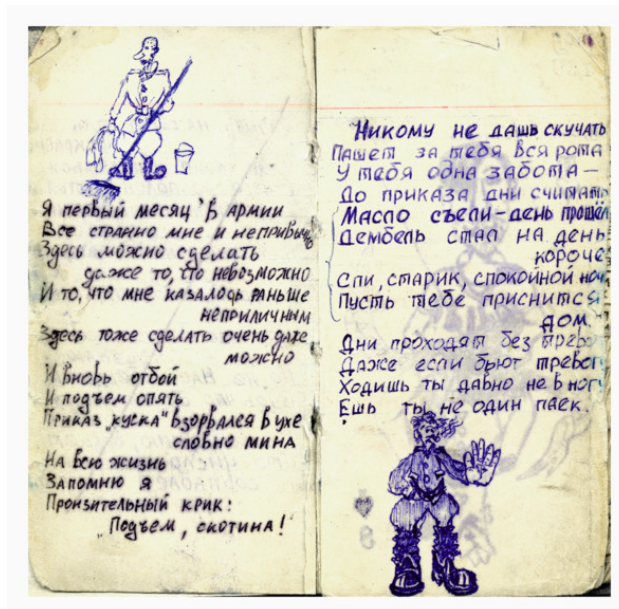 Я первый месяц в армии
Все странно мне и непривычно
Здесь можно сделать
даже то, что невозможно
И то, что мне казалось раньше
неприличным
Здесь тоже сделать очень даже
можно
И вновь отбой
И подъем опять
Приказ „куска" взорвался в ухе
словно мина
На всю жизнь
Запомню я
Пронзительный крик:
„Подъем, скотина!
Никому не дашь скучать
Пашет за тебя вся рота
У тебя одна забота —
До приказа дни считать
Масло съели – день прошёл
Дембель стал на день
короче
Спи, старик, спокойной ночи
Пусть тебе приснится
дом.
Дни проходят без тревог
Даже если бьют тревогу
Ходишь ты давно не в ногу
Ешь ты не один паек.